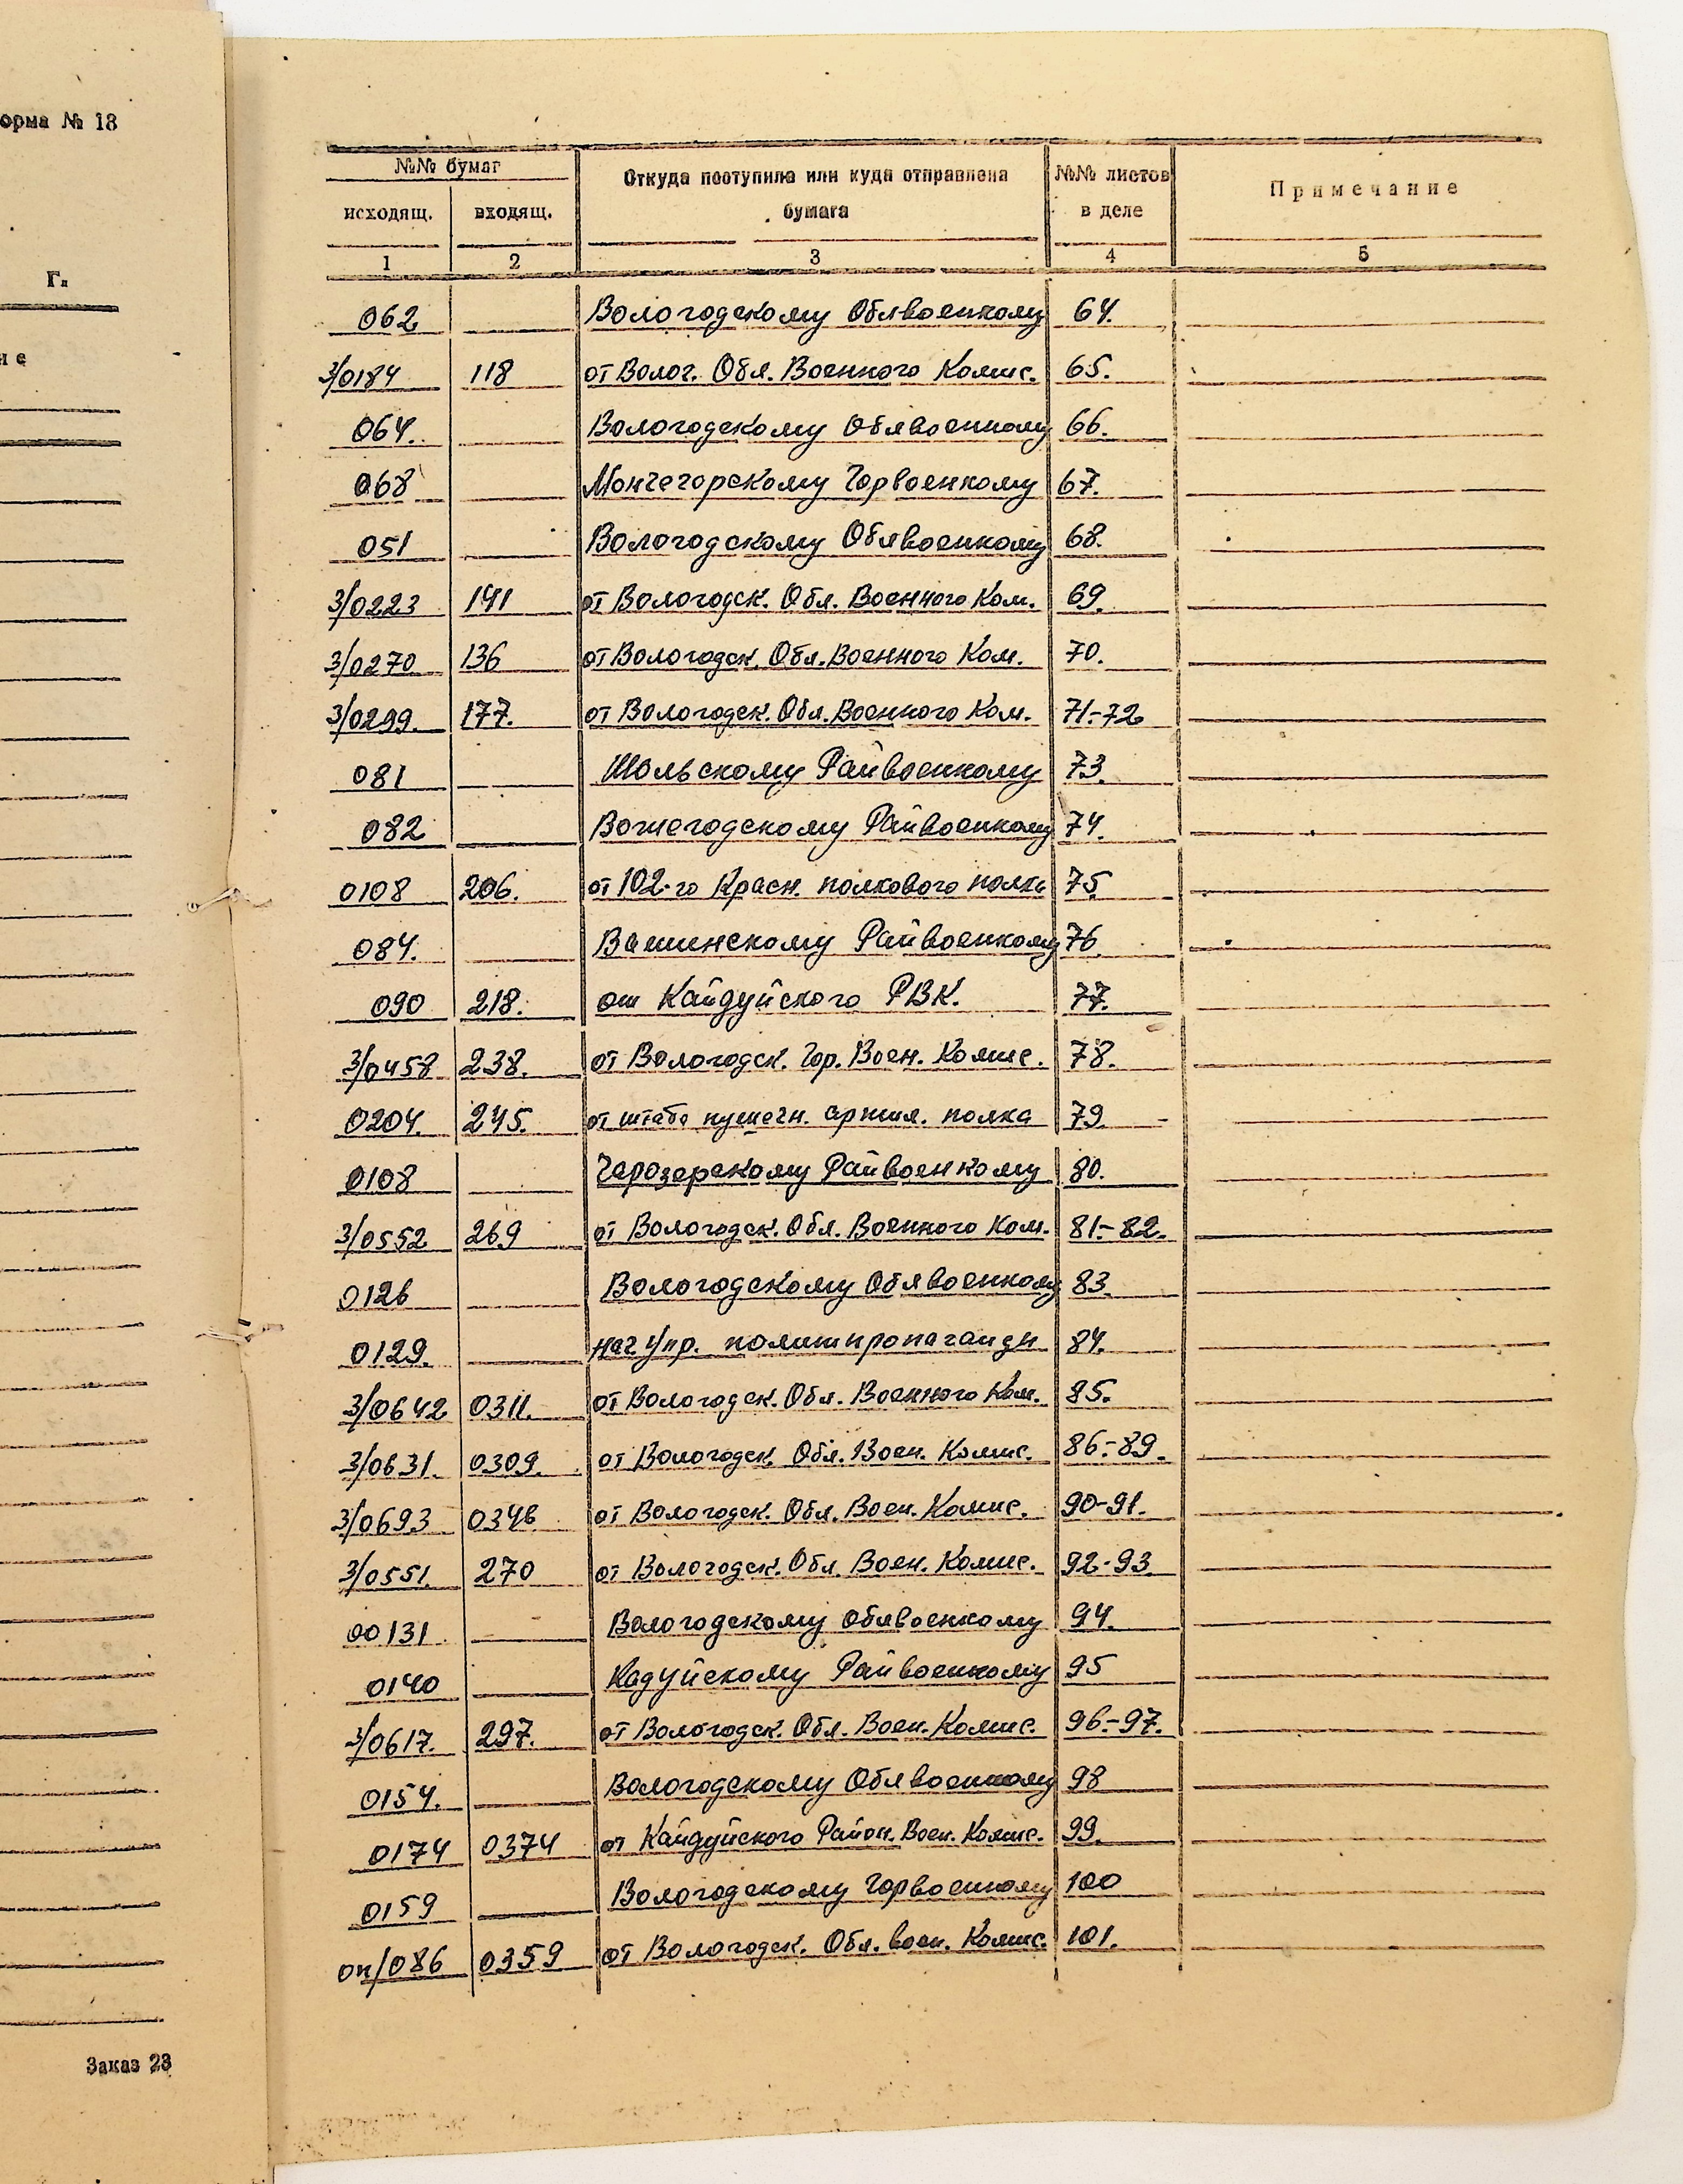 орма № 18
Г.
не
Заказ 23
№№ бумаг
Откуда поступила или куда отправлена бумага
№№ листов в деле
Примечание
исходящ. входящ.
1 2 3 4 5
062 Вологодскому Облвоенкому 64.
3/0184 118 от Волог. Обл. Военного Комис. 65.
064. Вологодскому Облвоенкому 66.
068 Мончегорскому Горвоенкому 67.
051 Вологодскому Облвоенкому 68.
3/0223 141 от Вологодск. Обл. Военного Ком. 69.
3/0270 136 от Вологодск. Обл. Военного Ком. 70.
3/0299. 177. от Вологодск. Обл. Военного Ком. 71.-72
081 Шольскому Райвоенкому 73.
082 Вожегодскому Райвоенкому 74.
0108 206. от 102-го Красн. полкового полка 75.
084. Вашинскому Райвоенкому 76
090 218. от Кайдуйского РВК. 77.
3/0458 238. от Вологодск. Гор. Воен. Комис. 78.
0204. 245. от штаба пушечн. артил. полка 79.
0108 Чарозерскому Райвоенкому 80.
3/0552 269 от Вологодск. Обл. Военного Ком. 81.-82.
0126 Вологодскому Облвоенкому 83.
0129. нач. Упр. политпропаганды 84.
3/0642 0311. от Вологодск. Обл. Военного Ком. 85.
3/0631. 0309. от Вологодск. Обл. Воен. Комис. 86.-89.
3/0693 0346 от Вологодск. Обл. Воен. Комис. 90-91.
3/0551. 270 от Вологодск. Обл. Воен. Комис. 92-93.
00131 Вологодскому Облвоенкому 94.
0140 Кадуйскому Райвоенкому 95
3/0617. 297. от Вологодск. Обл. Воен. Комис. 96.-97.
0154. Вологодскому Облвоенкому 98
0174 0374 от Кайдуйского Район. Воен. Комис. 99.
0159 Вологодскому Горвоенкому 100
оп/086 0359 от Вологодск. Обл. воен. Комис. 101.